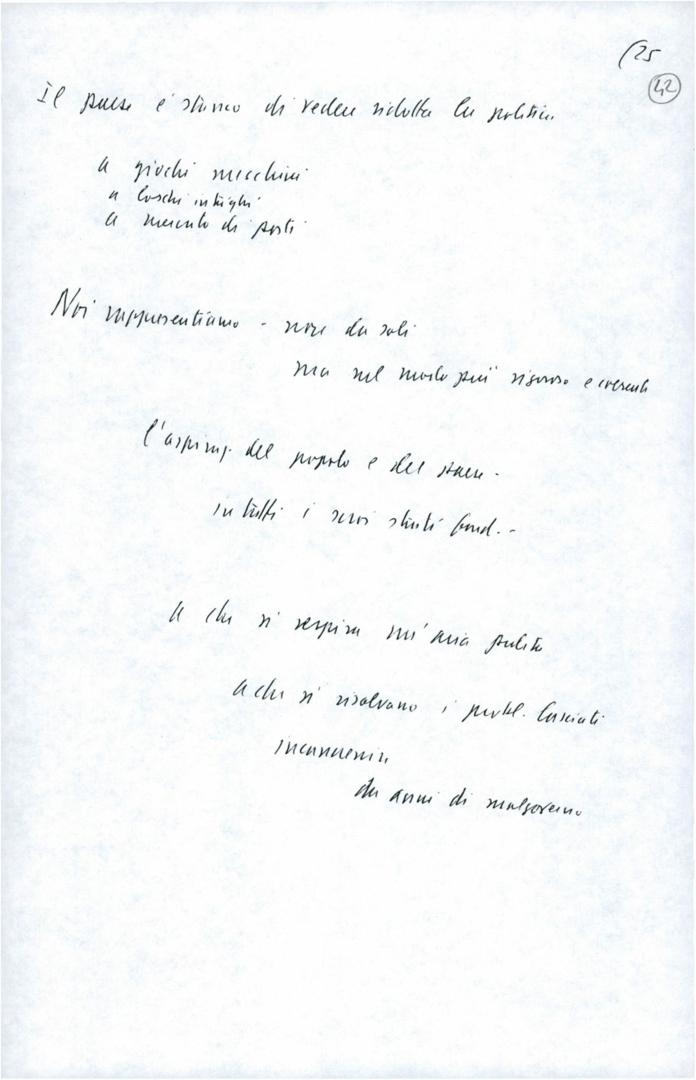 (25
42
Il paese è stanco di vedere ridotta la politica
a giochi meschini
a loschi intrighi
a mercato di posti
Noi rappresentiamo - non da soli
ma nel modo più rigoroso e coerente
l'aspiraz. del popolo e del paese -
in tutti i suoi strati fond. -
a che si respiri un'aria pulita
a che si risolvano i probl. lasciati
incancrenire
da anni di malgoverno